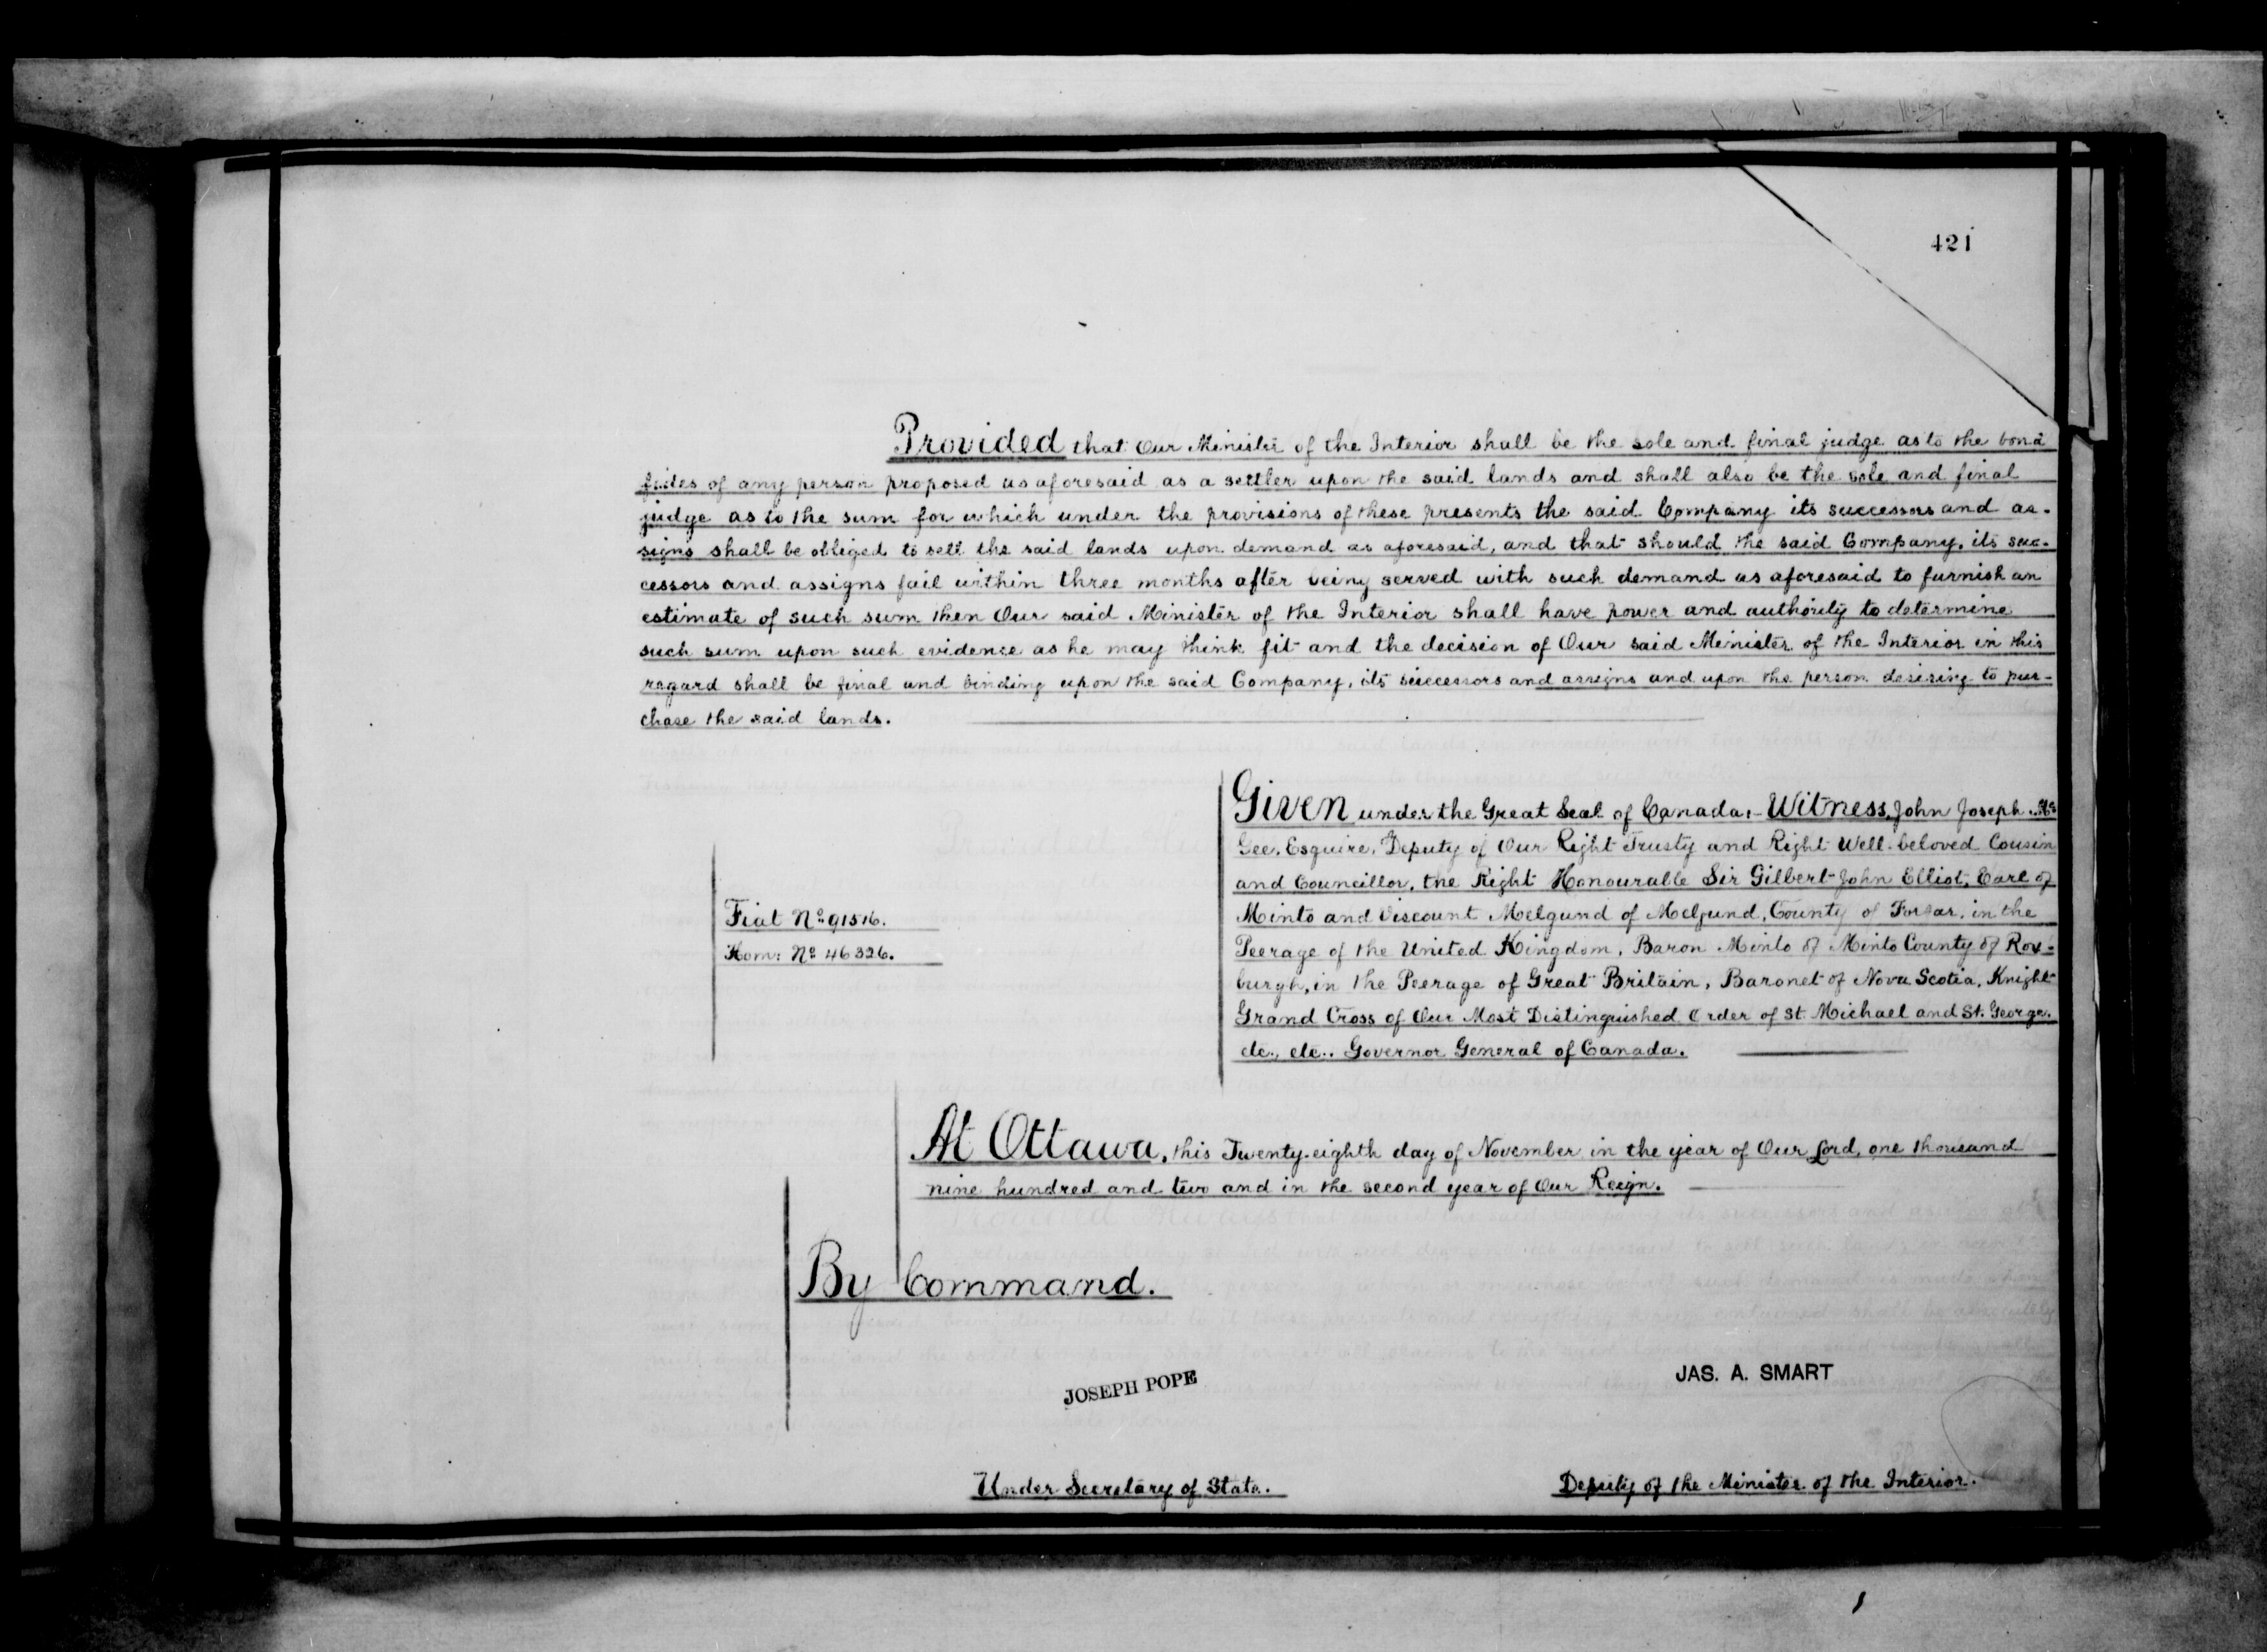 421
Provided that Our Minister of the Interior shall be the sole and final judge as to the bonâ
fides of any person proposed as aforesaid as a settler upon the said lands and shall also be the sole and final
judge as to the sum for which under the provisions of these presents the said Company its successors and as-
signs shall be obliged to sell the said lands upon demand as aforesaid, and that should the said Company, its suc-
cessors and assigns fail within three months after being served with such demand as aforesaid to furnish an
estimate of such sum then Our said Minister of the Interior shall have power and authority to determine
such sum upon such evidence as he may think fit and the decision of Our said Minister of the Interior in this
regard shall be final and binding upon the said Company, its successors and assigns and upon the person desiring to pur-
chase the said lands.
Given under the Great Seal of Canada:- Witness, John Joseph Mc
Gee, Esquire, Deputy of Our Right Trusty and Right Well-beloved Cousin
and Councillor, the Right Honourable Sir Gilbert John Elliot, Earl of
Minto and Viscount Melgund of Melgund, County of Forfar, in the
Peerage of the United Kingdom, Baron Minto of Minto County of Rox-
burgh, in the Peerage of Great Britain, Baronet of Nova Scotia, Knight
Grand Cross of Our Most Distinguished Order of St Michael and St. George,
etc., etc., Governor General of Canada.
Fiat No. 91516.
Hom: No. 46326.
At Ottawa, this Twenty-eighth day of November in the year of Our Lord, one thousand
nine hundred and two and in the second year of Our Reign.
By Command.
JOSEPH POPE
JAS. A. SMART
Under Secretary of State.
Deputy of the Minister of the Interior.